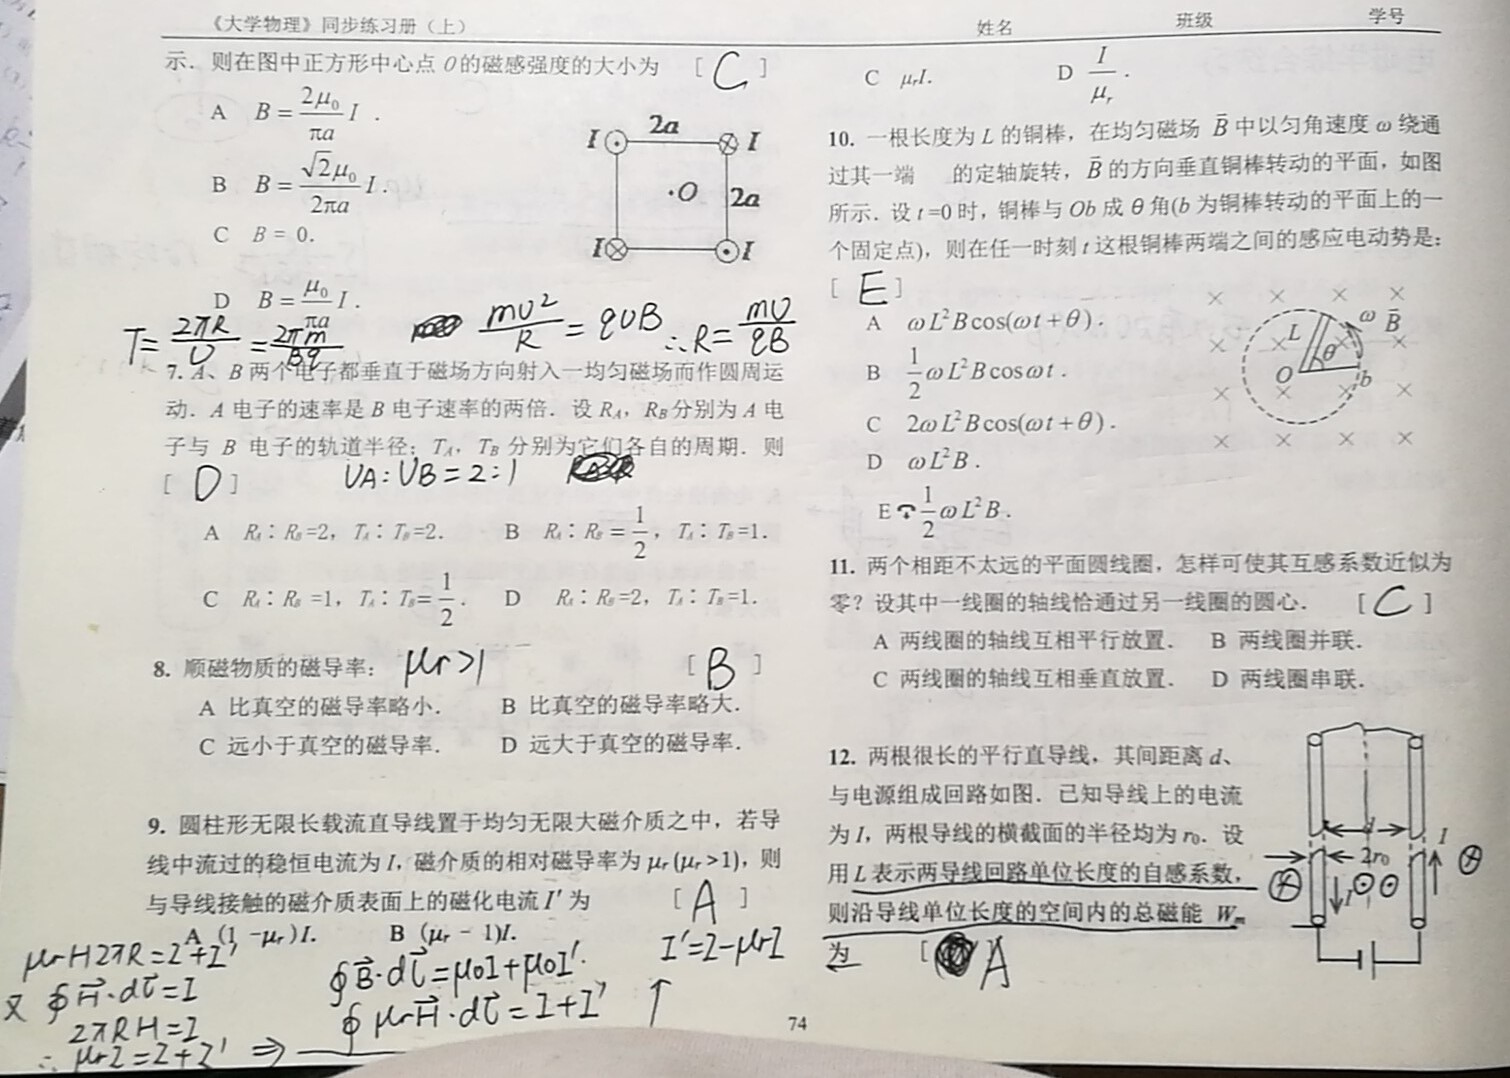 《大学物理》同步练习册（上）
姓名
班级
学号
示．则在图中正方形中心点 O 的磁感强度的大小为 [ C ]
A B = 2μ₀/πa I .
B B = √2μ₀/2πa I .
C B = 0.
D B = μ₀/πa I .
I 2a I
·O 2a
I I
T = 2πR/υ = 2πm/Bq
mυ²/R = qυB ∴R = mυ/qB
7. A、B 两个电子都垂直于磁场方向射入一均匀磁场而作圆周运
动．A 电子的速率是 B 电子速率的两倍．设 RA，RB 分别为 A 电
子与 B 电子的轨道半径；TA，TB 分别为它们各自的周期．则
[ D ] υA:υB=2:1
A RA∶RB=2，TA∶TB=2． B RA∶RB=1/2，TA∶TB=1．
C RA∶RB=1，TA∶TB=1/2． D RA∶RB=2，TA∶TB=1．
8. 顺磁物质的磁导率： μr>1 [ B ]
A 比真空的磁导率略小． B 比真空的磁导率略大．
C 远小于真空的磁导率． D 远大于真空的磁导率．
9. 圆柱形无限长载流直导线置于均匀无限大磁介质之中，若导
线中流过的稳恒电流为 I，磁介质的相对磁导率为 μr (μr >1)，则
与导线接触的磁介质表面上的磁化电流 I′ 为 [ A ]
A (1 -μr )I. B (μr - 1)I.
μrH2πR=I+I'
又 ∮H·dl=I
2πRH=I
∴ μrI=I+I' ⇒
∮B·dl=μ0I+μ0I'.
∮ μrH·dl=I+I'
I'=I-μrI
↑
74
C μrI. D I/μr .
10. 一根长度为 L 的铜棒，在均匀磁场 B 中以匀角速度 ω 绕通
过其一端 的定轴旋转，B 的方向垂直铜棒转动的平面，如图
所示．设 t =0 时，铜棒与 Ob 成 θ 角(b 为铜棒转动的平面上的一
个固定点)，则在任一时刻 t 这根铜棒两端之间的感应电动势是：
[ E ]
A ωL²Bcos(ωt+θ) .
B 1/2 ωL²Bcosωt .
C 2ωL²Bcos(ωt+θ) .
D ωL²B .
E 1/2 ωL²B .
L ω B
O θ b
11. 两个相距不太远的平面圆线圈，怎样可使其互感系数近似为
零？设其中一线圈的轴线恰通过另一线圈的圆心． [ C ]
A 两线圈的轴线互相平行放置． B 两线圈并联．
C 两线圈的轴线互相垂直放置． D 两线圈串联．
12. 两根很长的平行直导线，其间距离 d、
与电源组成回路如图．已知导线上的电流
为 I，两根导线的横截面的半径均为 r₀．设
用 L 表示两导线回路单位长度的自感系数，
则沿导线单位长度的空间内的总磁能 Wm
为 [ ] A
d
2r₀ I
I